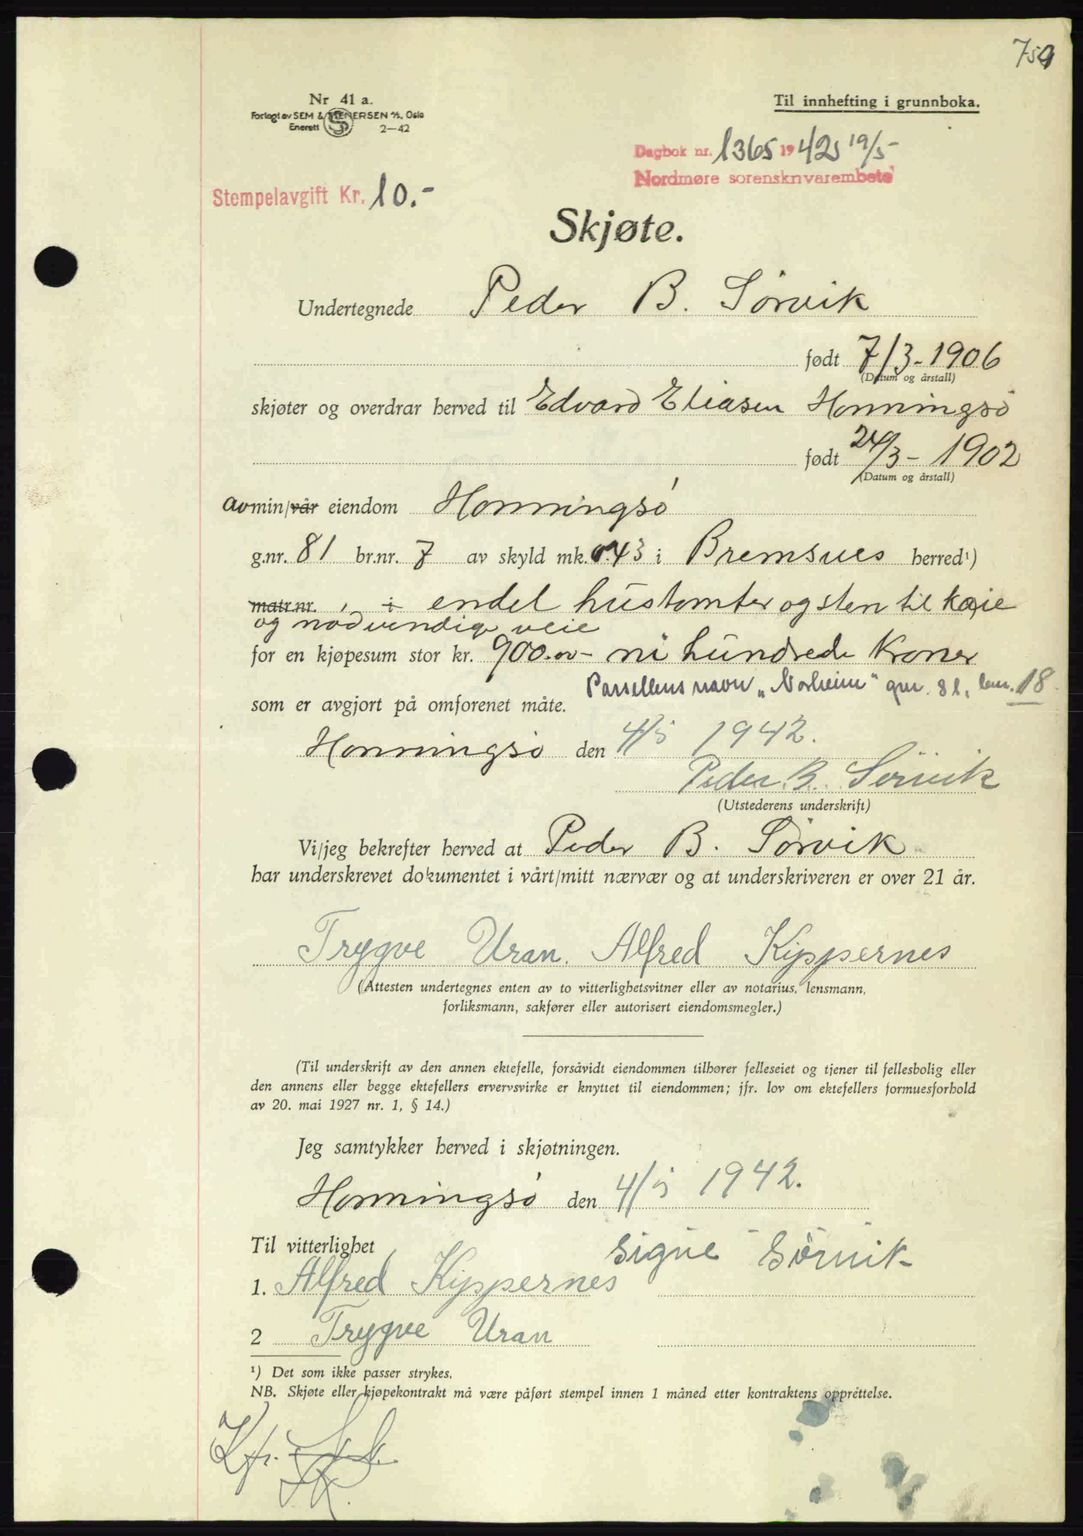 759
Nr 41 a.
Forlagt av SEM & STENERSEN A/S, Oslo
Enerett 2-42
Til innhefting i grunnboka.
Dagbok nr. 1365 1942 19/5-
Nordmøre sorenskrivarembete
Stempelavgift Kr. 10.-
Skjøte.
Undertegnede Peder B. Sörvik
født 7/3-1906
(Datum og årstall)
skjøter og overdrar herved til Edvard Eliasen Honningsö
født 24/3-1902
(Datum og årstall)
av min/vår eiendom Honningsö
g.nr. 81 br.nr. 7 av skyld mk. 0.43 i Bremsnes herred¹)
matr.nr. i endel hustomter og sten til kaie
og nödvendige veie
for en kjøpesum stor kr. 900.00- ni hundrede Kroner
Parsellens navn „Norheim" gnr. 81, bnr. 18
som er avgjort på omforenet måte.
Honningsö den 4/5 1942.
Peder B. Sörvik
(Utstederens underskrift)
Vi/jeg bekrefter herved at Peder B. Sörvik
har underskrevet dokumentet i vårt/mitt nærvær og at underskriveren er over 21 år.
Trygve Uran. Alfred Kippernes
(Attesten undertegnes enten av to vitterlighetsvitner eller av notarius, lensmann,
forliksmann, sakfører eller autorisert eiendomsmegler.)
(Til underskrift av den annen ektefelle, forsåvidt eiendommen tilhører felleseiet og tjener til fellesbolig eller
den annens eller begge ektefellers ervervsvirke er knyttet til eiendommen; jfr. lov om ektefellers formuesforhold
av 20. mai 1927 nr. 1, § 14.)
Jeg samtykker herved i skjøtningen.
Honningsö den 4/5 1942.
Til vitterlighet Signe Sörvik
1. Alfred Kippernes
2 Trygve Uran
¹) Det som ikke passer strykes.
NB. Skjøte eller kjøpekontrakt må være påført stempel innen 1 måned etter kontraktens opprettelse.
Kfr.